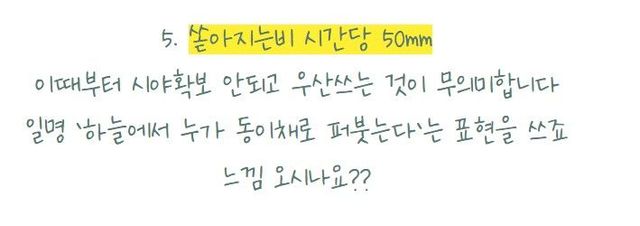 5. 쏟아지는비 시간당 50mm
이때부터 시야확보 안되고 우산쓰는 것이 무의미합니다
일명 '하늘에서 누가 동이채로 퍼붓는다'는 표현을 쓰죠
느낌 오시나요??